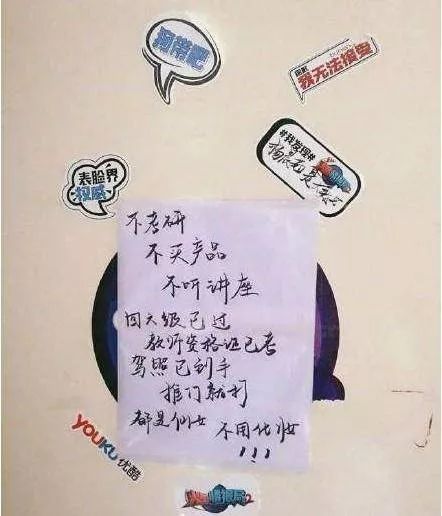 狗带吧
我无法接受
#我发现#
表脸界
权威
不考研
不买产品
不听讲座
四六级已过
教师资格证已考
驾照已到手
推门就打
都是仙女 不用化妆
!!!
YOUKU 优酷
火星情报局2